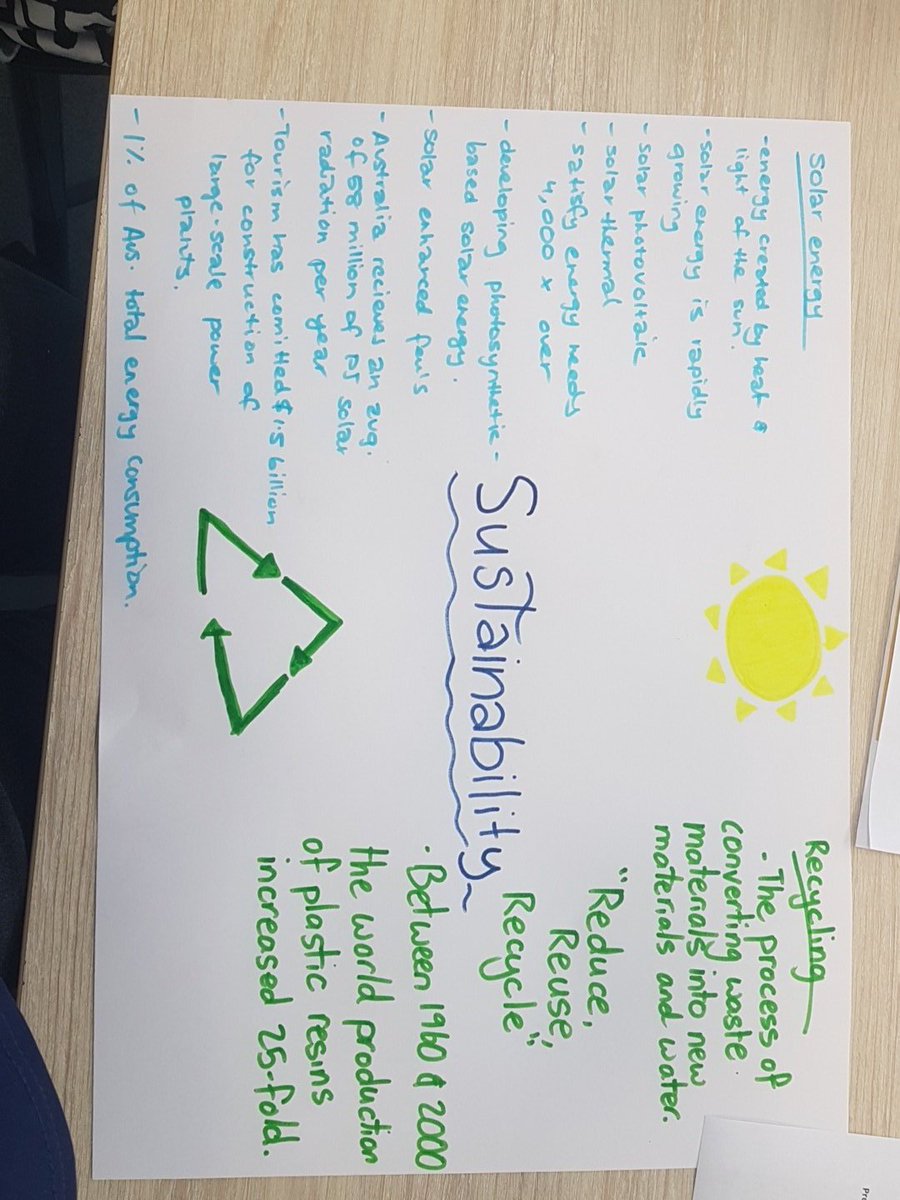 Solar energy
- energy created by heat &
light of the sun.
- solar energy is rapidly
growing
- solar photovoltaic
- solar thermal
- satisfy energy needs
4,000 x over
- developing photosynthetic -
based solar energy.
- solar enhanced feuls
- Australia recieved an avg.
of 58 million of PJ solar
radiation per year
- Tourism has comitted $1.5 billion
for construction of
large-scale power
plants.
- 1% of Aus. total energy consumption.
Sustainability
Recycling
- The process of
converting waste
materials into new
materials and water.
"Reduce,
Reuse,
Recycle"
- Between 1960 & 2000
the world production
of plastic resins
increased 25-fold.